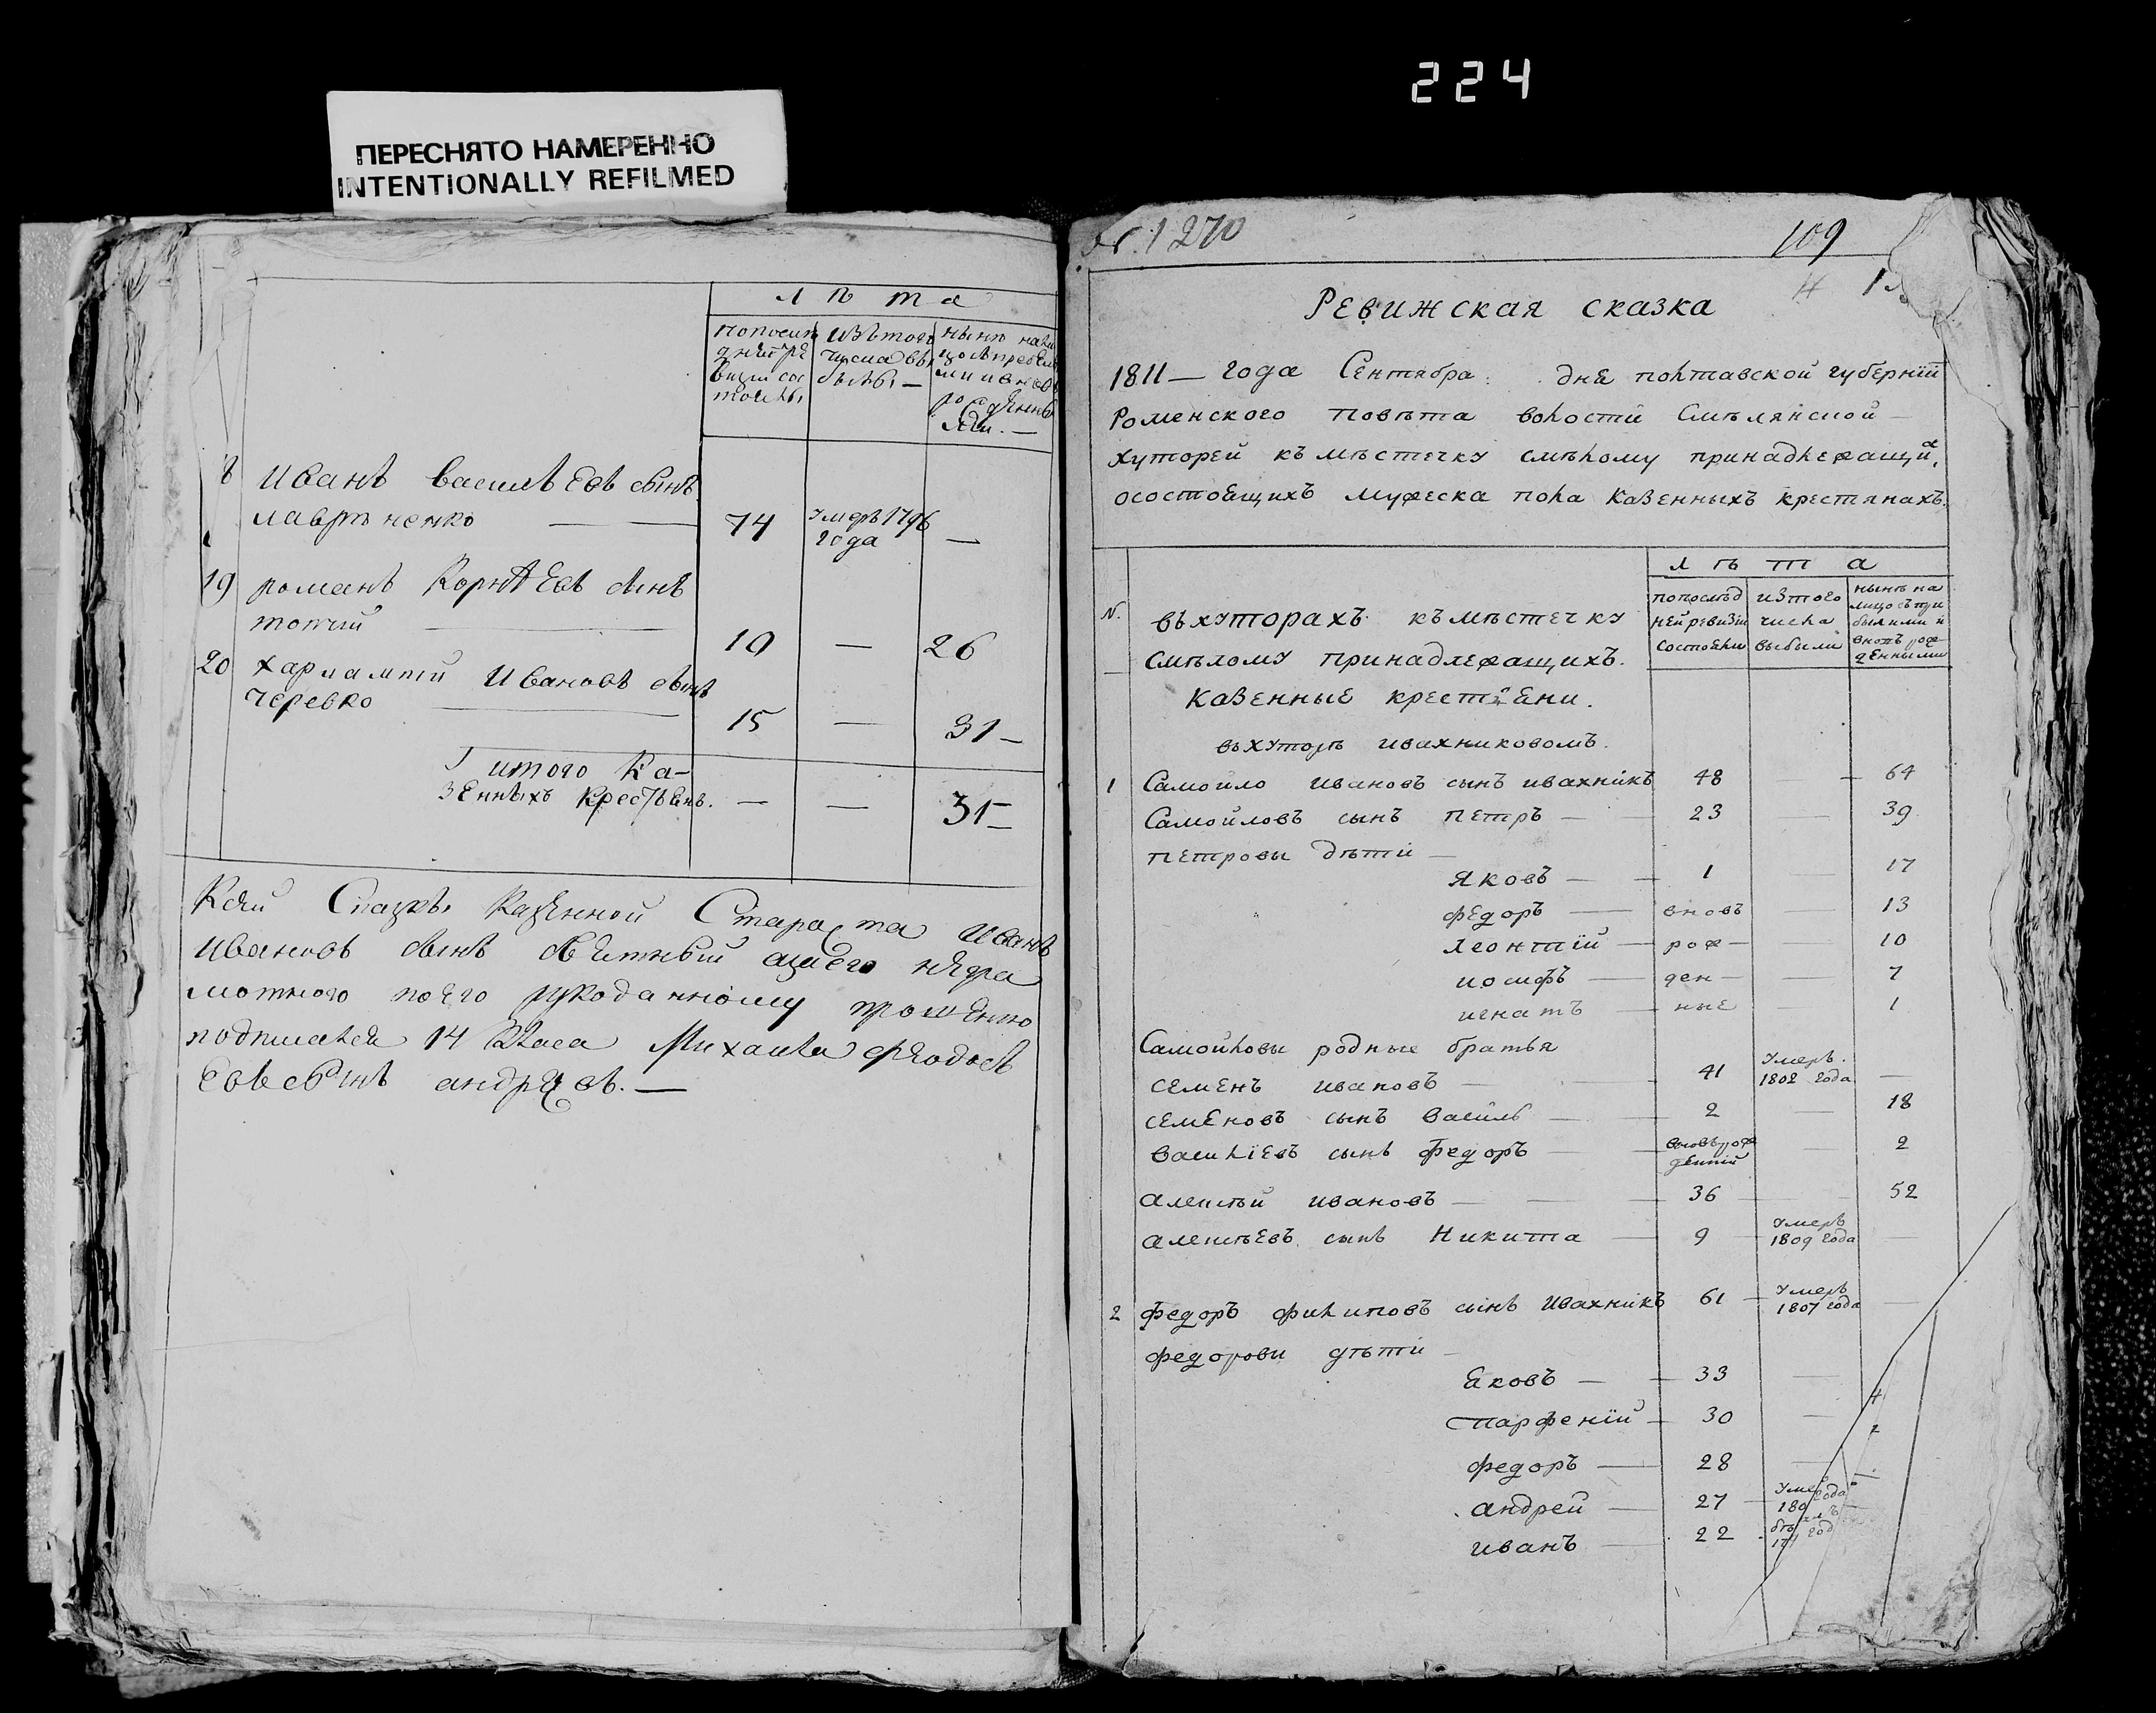 224
ПЕРЕСНЯТО НАМЕРЕННО
INTENTIONALLY REFILMED
лѣта
попосли изътого нынѣ на
дней ре числа вы лицо
визии сос были —
тояли
8 Иванъ василѣевъ сынъ
лаврѣненко — 74 умеръ 1796 года —
19 романъ Корнѣевъ сынъ
топчий — 10 — 26
20 харлампий Ивановъ сынъ
черевко — 15 — 31 —
итого Ка-
зенныхъ крестьянъ. — — 31 —
Сказкѣ казенной Староста Иванъ
Ивановъ сынъ
мотного поего рукоданному прошению
подписался 14 Класа Михаила Федосѣ
евъ сынъ андреевъ. —
1270
109
Ревижская сказка
1811 — года Сентября дня полтавской губернїи
Роменского повѣта волости Смѣлянской
хуторей къ мѣстечку смѣлому принадлежащи
осостоящихъ мужеска пола казенныхъ крестянахъ.
лѣта
№. въхуторахъ къ мѣстечку
Смѣлому принадлежащихъ.
казенные крестяени.
попослѣд изтого нынѣ на
ней ревизїи числа лицо съ при
состояли выбыли былими и
вновъ рож
денными
въхуторѣ ивахниковомъ.
1 Самойло ивановъ сынъ ивахникъ 48 — 64
Самойловъ сынъ петръ — 23 — 39
петровы дѣти —
яковъ — 1 — 17
федоръ — вновъ — 13
леонтїй — рож — — 10
иосифъ — ден — — 7
игнатъ — ные — 1
Самойловы родные братья
семенъ ивановъ — 41 умеръ. 1802 года —
семеновъ сынъ василь — 2 — 18
василїевъ сынъ федоръ — вновъ рож денній — 2
алексѣй ивановъ — 36 — 52
алексѣевъ сынъ никита — 9 умеръ 1809 года —
2 федоръ филиповъ сынъ ивахникъ 61 — умеръ 1807 года
федорови дѣти —
яковъ — 33 —
парфенїй — 30 —
федоръ — 28 —
андрей — 27 — года
иванъ — 22